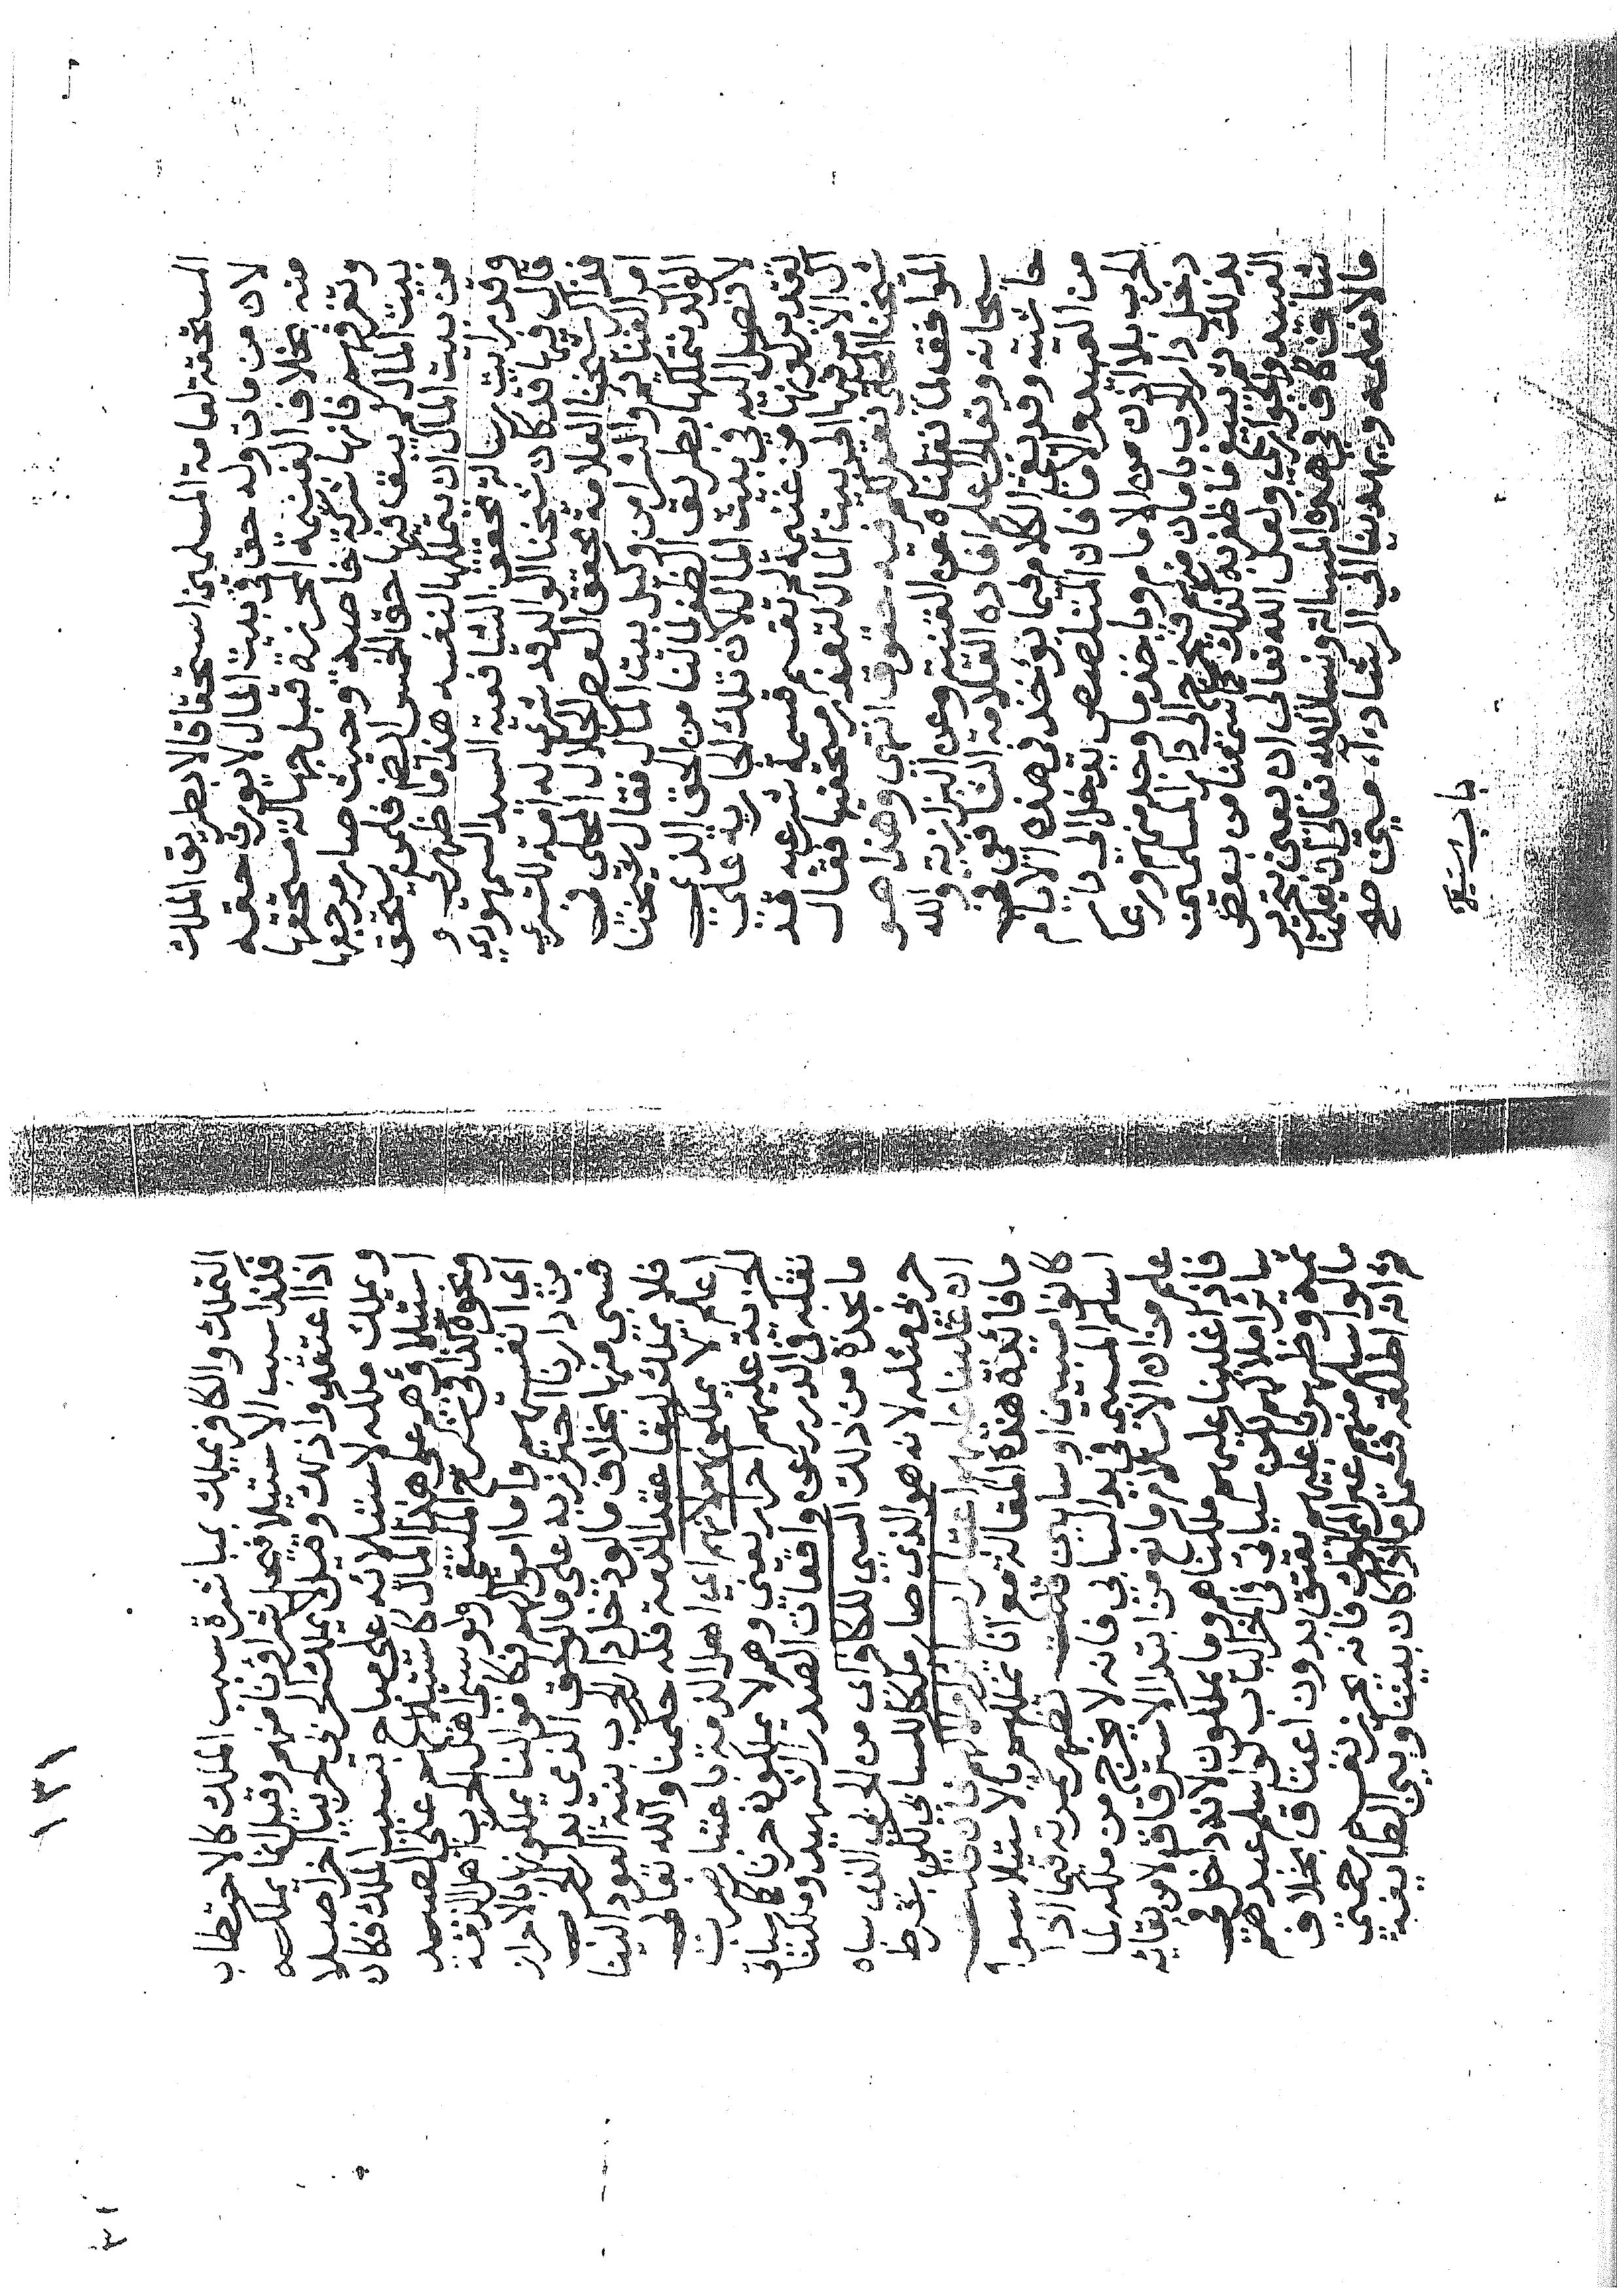 المستحقة لعامة المسلمين استحقاقا لا بطريق الملك
لان من مات وله حق في بيت المال لا يورث حقه
منه بخلاف الغنيمة المحرزة قبل جهالة مستحقها
وتفرقهم فانها شركة خاصة وحيث صار مرجعها
بيت المال لم يبق فيها حق الخمس ايضا فلمن يستحق
من بيت المال ان يتملكها لنفسه هذا ما ظهر لي و
وقد رايت رسالة لمحقق الشافعية السيد السمهودي
قال فيها قد كان شيخنا الوالد قد شرى له امة للتسري
فذاكر شيخنا العلامة محقق العصر الجلال المحلي في
امر الغنائم والشرا من وكيل بيت المال فقال شيخنا
الوالد نتملكها بطريق الظفر لما لنا من الحق الذي
لا نصل اليه في بيت المال لان تلك الجارية على
تقدير كونها من غنيمة لم تقسم قسمة شرعية قد
آل الامر فيها الى بيت المال لتعذر مستحقيها فقال
شيخنا المحلي نعم لكم فيه حقوق انتهى وهذا هو
الموافق لما نقلناه عن القنية وعن البزازية والله
سبحانه وتعالى اعلم افاده العلامة الشافعي في
حاشيته وقد بقي الكلام فيما يؤخذ في هذه الايام
من العبيد والاما فان المتلصص يدخل الى دار
الحرب بلا اذن من الامام وياخذ ما وجد منهم وربما
دخل دار الحرب بامان منهم فيخرج الى دار المسلمين
بعد ذلك ثم يبيع ما ظفر به كذلك كما سمعنا من بعض
العبيد والجواري ولعل الله تعالى ان يعين بتحرير
شاف كاف في هذه المسالة ونسال الله تعالى ان يعلمنا
ما لا نعلمه ويهدينا الى الرشاد اه مبيض صح
باب استيلا
١٣١
التملك والكافر يملك بمباشرة سبب الملك كالاحتطاب
فكذا سبب الاستيلا فيحل شراؤنا منهم وقيل انما يملكه
اذا اعتقدوا ذلك وقيل لا يملك الحربي حربيا اخر اصلا
ويملك ماله لاستيلائه على مباح بسبب الملك فكان
استيلاؤهم على هذا المال كاستيلائهم على الصيد
ونحوه كذا في شرح الملتقى ولو سبى اهل الحرب اهل الذمة
اي انفسهم واما اموالهم فكاموالنا يملكونها بالاحراز
من دارنا احترز به على ما الحق الذي بدار الحرب
فسبي منها بخلاف ما لو دخل دار الحرب بنية العود الينا
فلا يملك لبقا عقد الذمة فله حكمنا والله تعالى
اعلم لا يملكونهم لانهم اي اهل الذمة باعتبار ضرب
الجزية عليهم احرار يعني وهم لا يملكون حرنا كما سياتي
نقله في الدرر عن واقعات الصدر الشهيد وملكنا
ما نجده من ذلك السبي للكافر اي من الحربي الذي سباه
حربي مثله لانه هو الذي صار ملكا للسابي لكن بشرط
ان غلبنا عليهم اعتبارا بسائر املاكهم فان قلت
ما فائدة هذه المقالة مع انا نملكهم بالاستيلا سوا
كانوا مسبيين او سابين قلت تظهر ثمرته فيما اذا
اسلم المسبي في يد السابي فانه لا يخرج من ملكه لما
علم من ان الاسلام مانع من ابتدا الاسترقاق لا من بقائه
فاذا غلبنا عليهم ملكناهم وما يملكون لانه داخل في
سائر املاكهم لكن سياتي في اخر الباب لو اسلم عبدهم
ثمه وظهرنا عليهم يعتق بدون اعتاق بخلاف
ما لو اسلم منهم غير المملوك فانه يحرز نفسه رحمتي
ثم انه اطلقه فشمل ما اذا كان بيننا وبين الطايفة